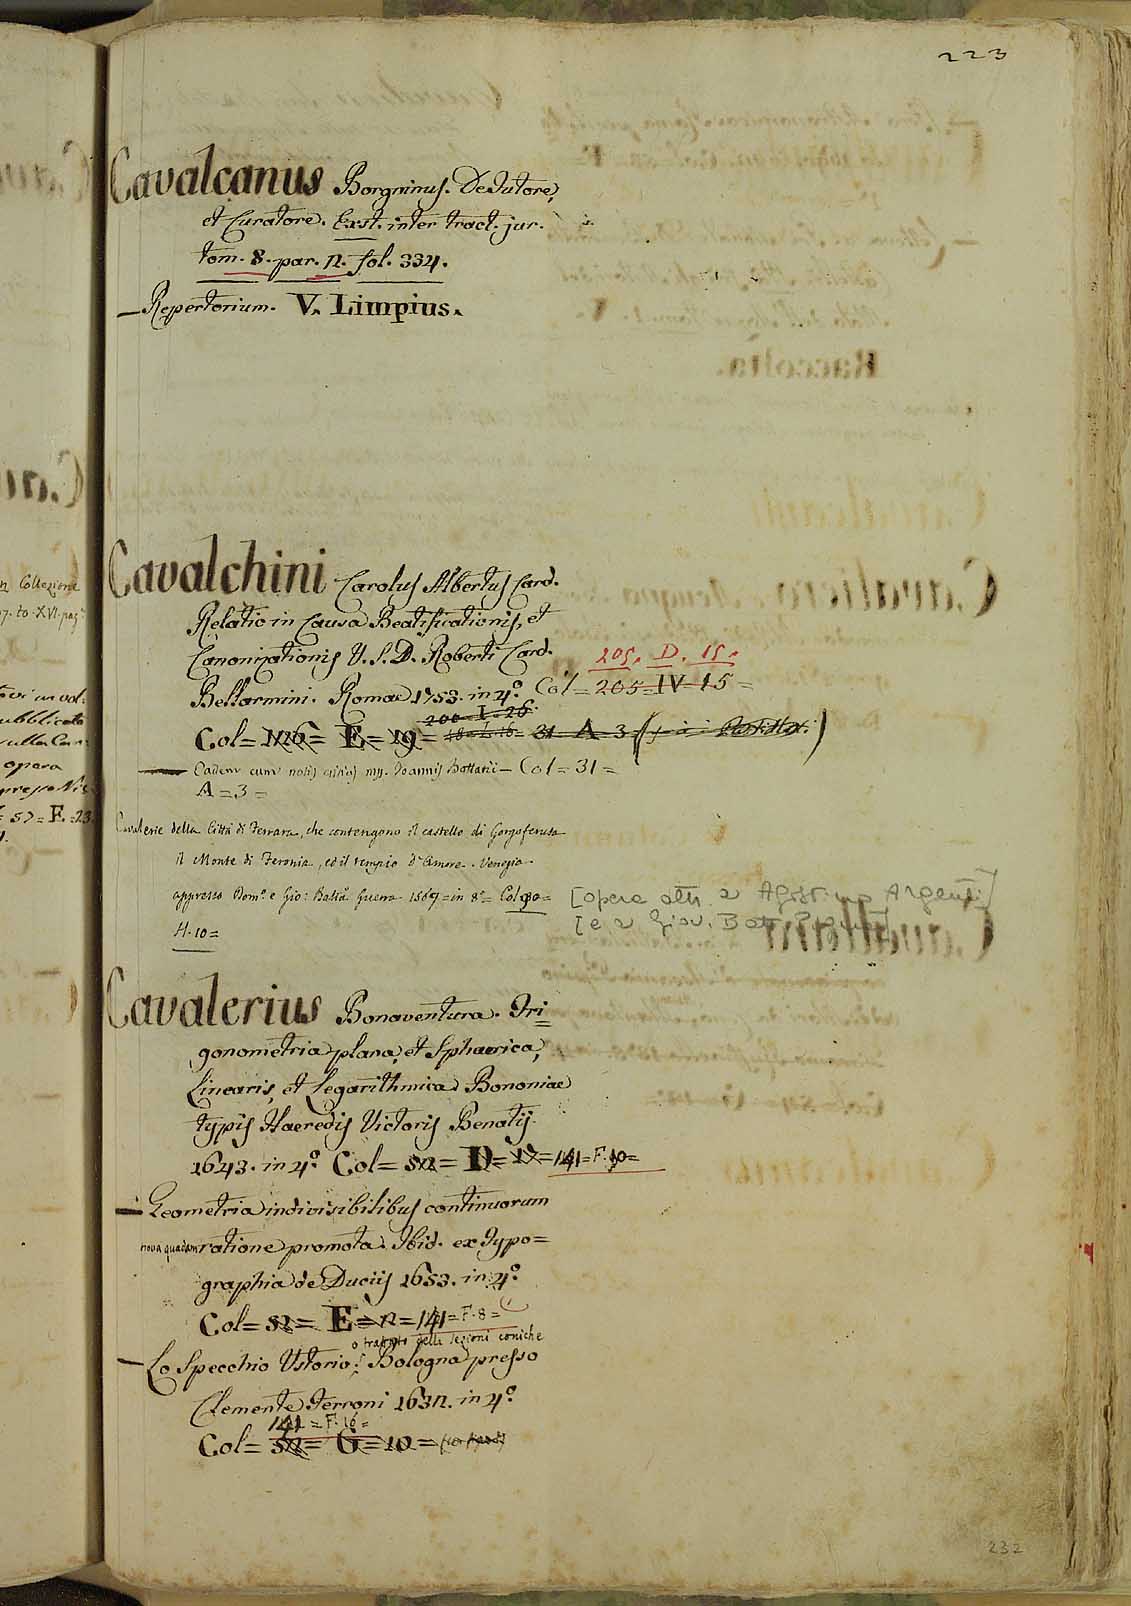 223
Cavalcanus Borgninus. De Tutore,
et Curatore. Exst. inter tract. jur.
tom. 8. par. 2. fol. 334.
— Repertorium. V. Limpius.
Cavalchini Carolus Albertus Card.
Relatio in Causa Beatificationis, et
Canonizationis V. S. D. Roberti Card.
205. D. 15.
Bellarmini. Romae 1753. in 4.º Col = 205 = IV = 15 =
200 = I = 26
Col = = E = 19 = = 31 = A = 3
— Eadem cum notis mss. Joannis Bottarii — Col = 31 =
A = 3 =
Cavalerie della Città di Ferrara, che contengono il castello di Gorgoferusa
il Monte di Feronia, ed il tempio d'Amore. Venezia
appresso Dom.º e Gio: Batta Guerra 1567 = in 8.º = Col 90 =
H. 10 =
[opera attr. a Agostino Argenti]
[e a Giov. Batt.
Cavalerius Bonaventura. Tri=
gonometria plana, et Sphaerica,
Linearis, et Logarithmica. Bononiae
typis Haeredis Victoris Benatij.
1643. in 4.º Col = 52 = D = 17 = 141 = F. 10 =
— Geometria indivisibilibus continuorum
nova quadam ratione promota. Ibid. ex Typo=
graphia de Duciis 1653. in 4.º
Col = 52 = E = 12 = 141 = F. 8 =
o trattato delle sezioni coniche
— Lo Specchio Ustorio. Bologna presso
Clemente Ferroni 1632. in 4.º
141 = F. 16 =
Col = 52 = G = 10 =
232
n Collezione
7. to. XVI. pag.
in vol.
pubblicato
sulla Can
opera
= 57 = E = 23.